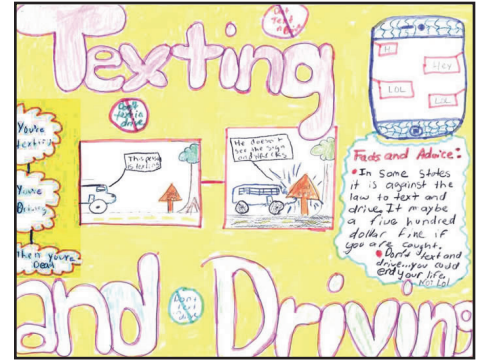 Texting
and Driving
Don't
Text
Don't
text n
drive
You're
texting
You're
Driving
Then You're
Dead
This person
is texting
He doesn't
see the sign
and wrecks
H
Hey
LOL
LOL
Facts and Advice:
In Some States
it is against the
law to text and
drive. It maybe
a five hundred
dollar fine if
you are caught.
Don't text and
drive...you could
end your life.
Not Lol
Don't
text n
drive